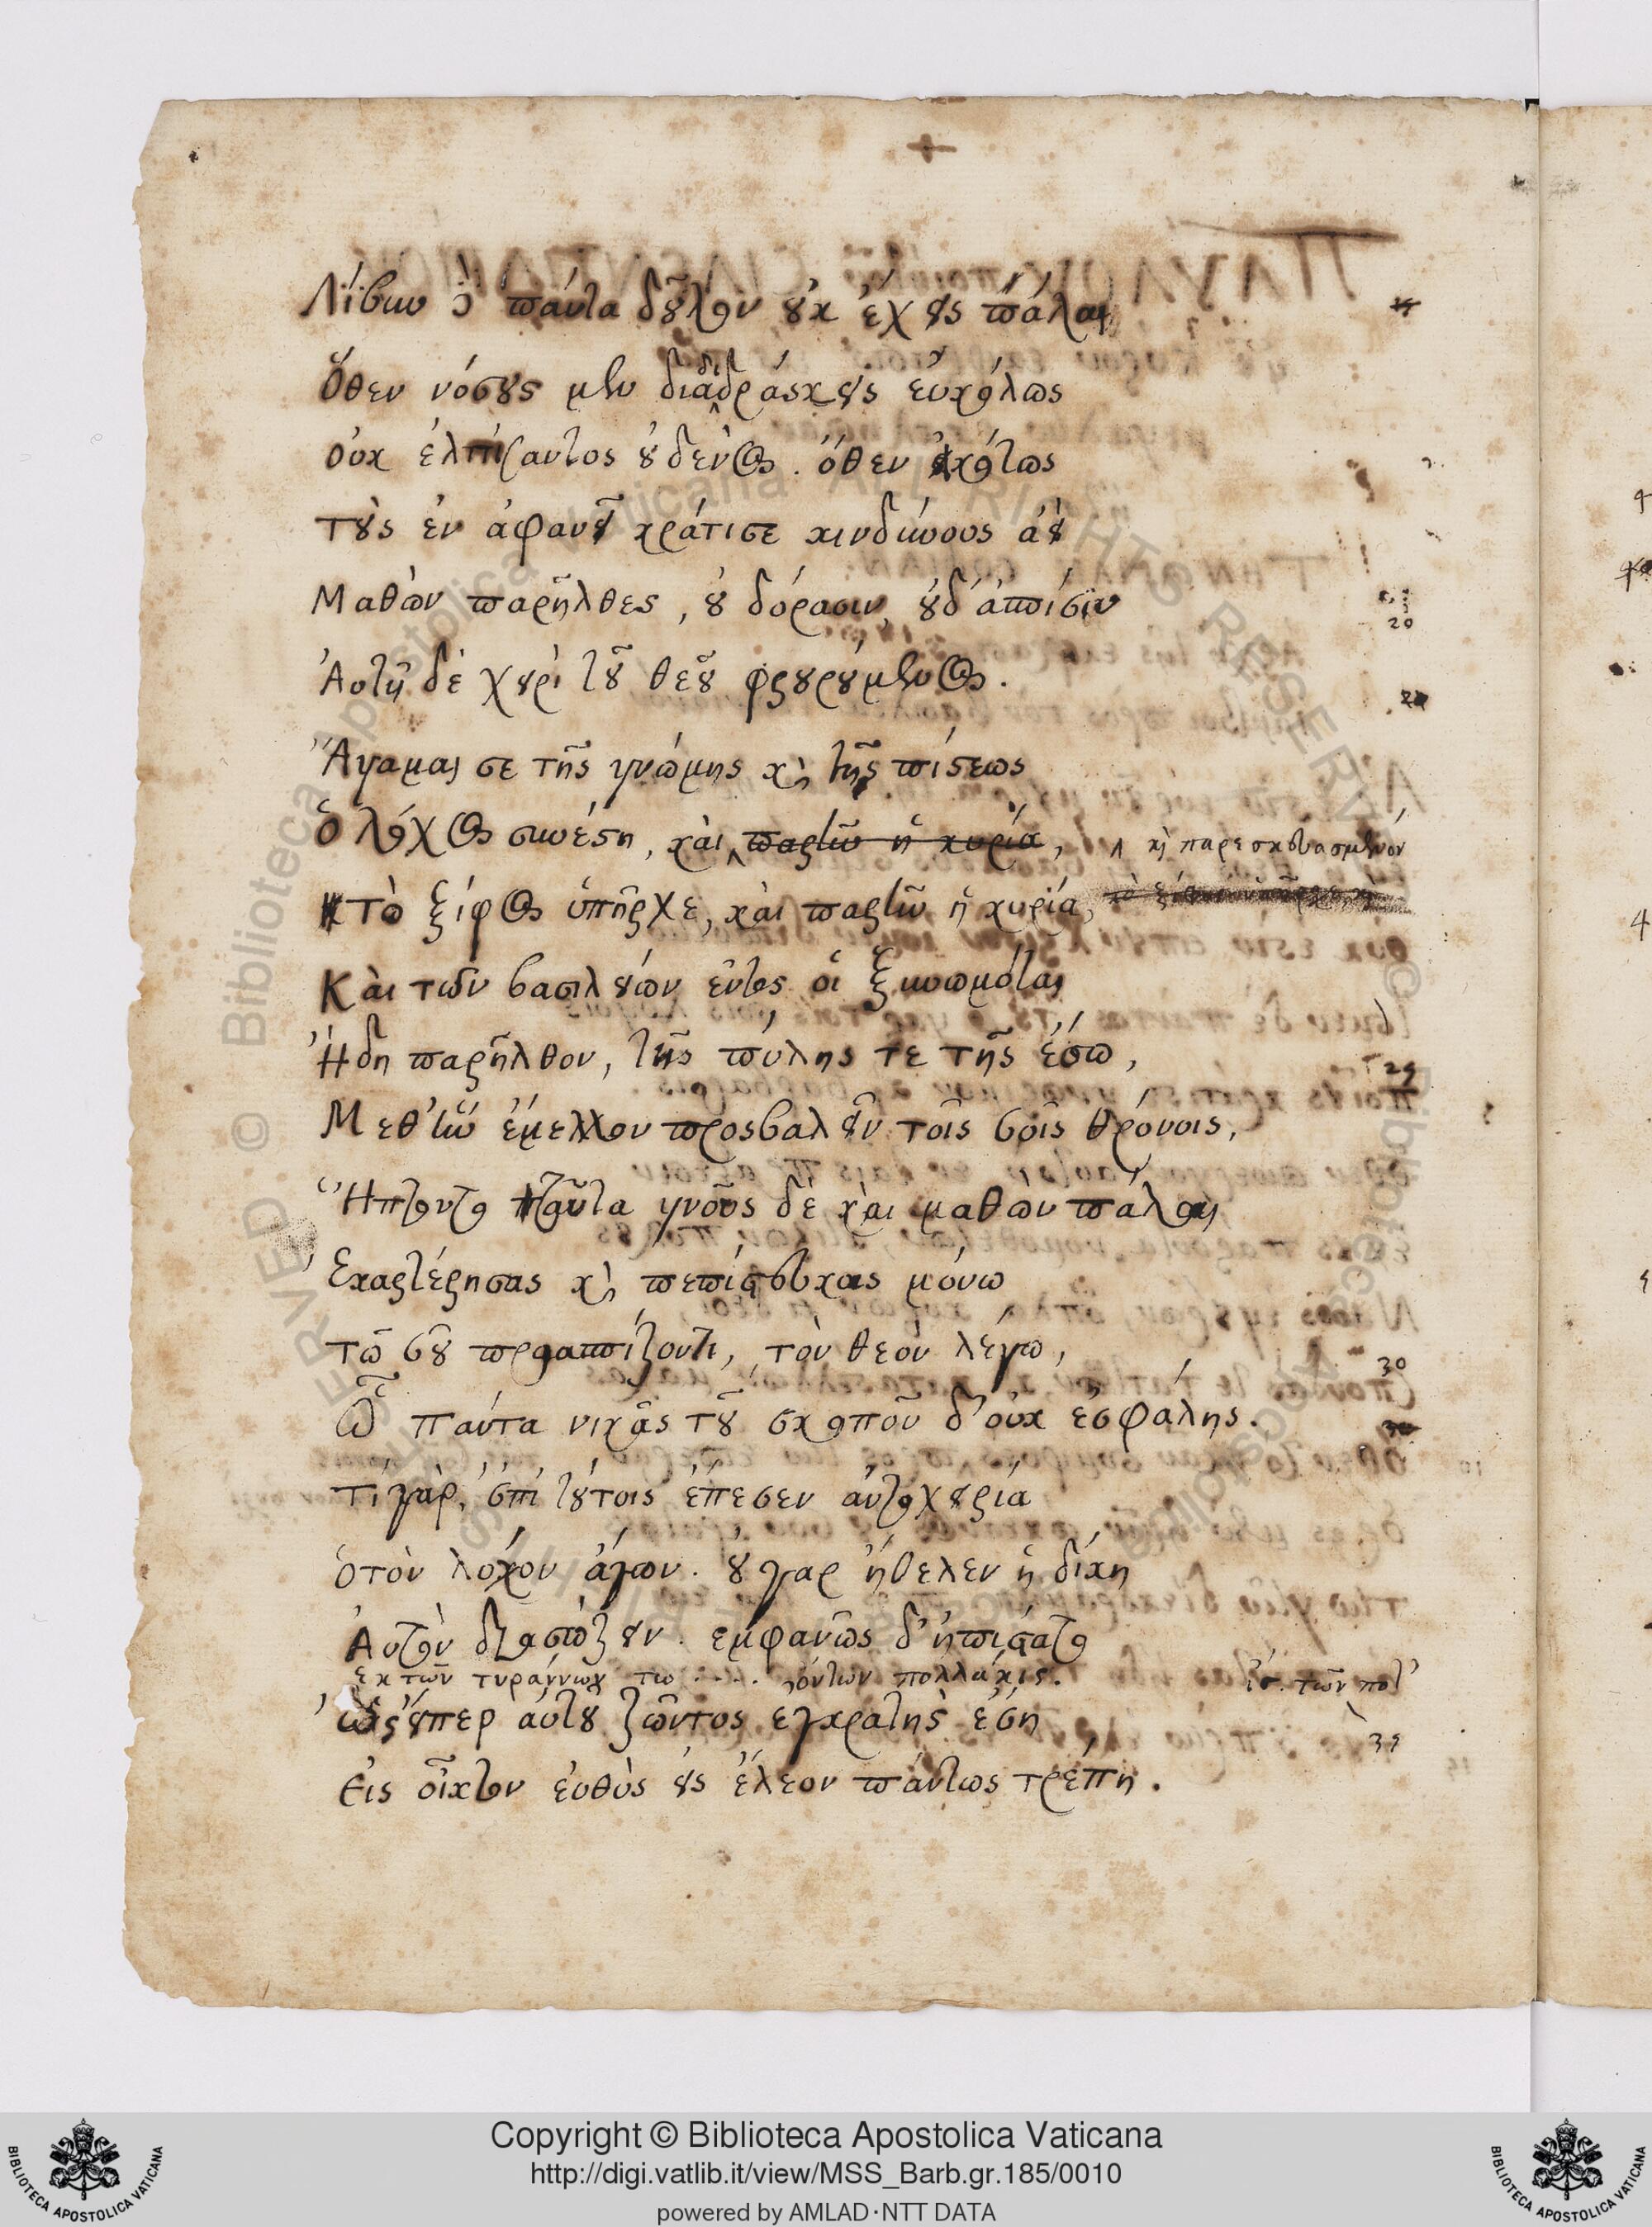 Λίβυν ὁ πάντα δοῦλον οὐκ ἔχεις πάλαι
Ὅθεν νόσους μὲν διαδιδράσκεις εὐκόλως
οὐκ ἐλπίσαντος οὐδενὸς. ὅθεν εἰκότως
τοὺς ἐν ἀφανεῖ κράτιστε κινδύνους ἀεὶ
20
Μαθὼν παρῆλθες, οὐ δόρασιν, οὐδ' ἀσπίσιν
Αυτῇ δὲ χειρὶ τοῦ θεοῦ φρουρούμενος.
Ἄγαμαι σε τῆς γνώμης καὶ τῆς πίστεως
Ὁ λόχος συνέστη, καὶ παρῆν ἡ κυρία, καὶ παρεσκευασμένον
τὸ ξίφος ὑπῆρχε, καὶ παρῆν ἡ κυρία,
Κὰι τῶν βασιλείων ἐντὸς οἱ ξυνωμόται
Ἤδη παρῆλθον, τῆς πύλης τε τῆς ἔσω,
Μεθ' ἣν ἔμελλον προσβαλεῖν τοῖς σοῖς θρόνοις,
Ἥπτοντο ταῦτα γνοῦς δὲ κὰι μαθὼν πάλαι
Ἐκαρτέρησας καὶ πεπίστευκας μόνω
30
τῶ σοῦ προασπίζοντι, τὸν θεὸν λέγω,
Ὧ πάντα νικᾷς τοῦ σκοποῦ δ' οὐκ ἐσφάλης.
τί γὰρ, ἐπὶ τούτοις ἔπεσεν αὐτοχειρία
ὁ τὸν λόχον ἄγων. οὐ γαρ ἤθελεν ἡ δίκη
Αὐτὸν διασώζειν. εμφανῶς δ' ἠπίστατο
εκ τῶν τυράννων των πολλάκις.
ἐγκρατὴς ἔση
Εἰς οἶκτον ἐυθὺς εἰς ἔλεον πάντως τρέπη.
Copyright © Biblioteca Apostolica Vaticana
http://digi.vatlib.it/view/MSS_Barb.gr.185/0010
powered by AMLAD·NTT DATA
BIBLIOTECA APOSTOLICA VATICANA
BIBLIOTECA APOSTOLICA VATICANA